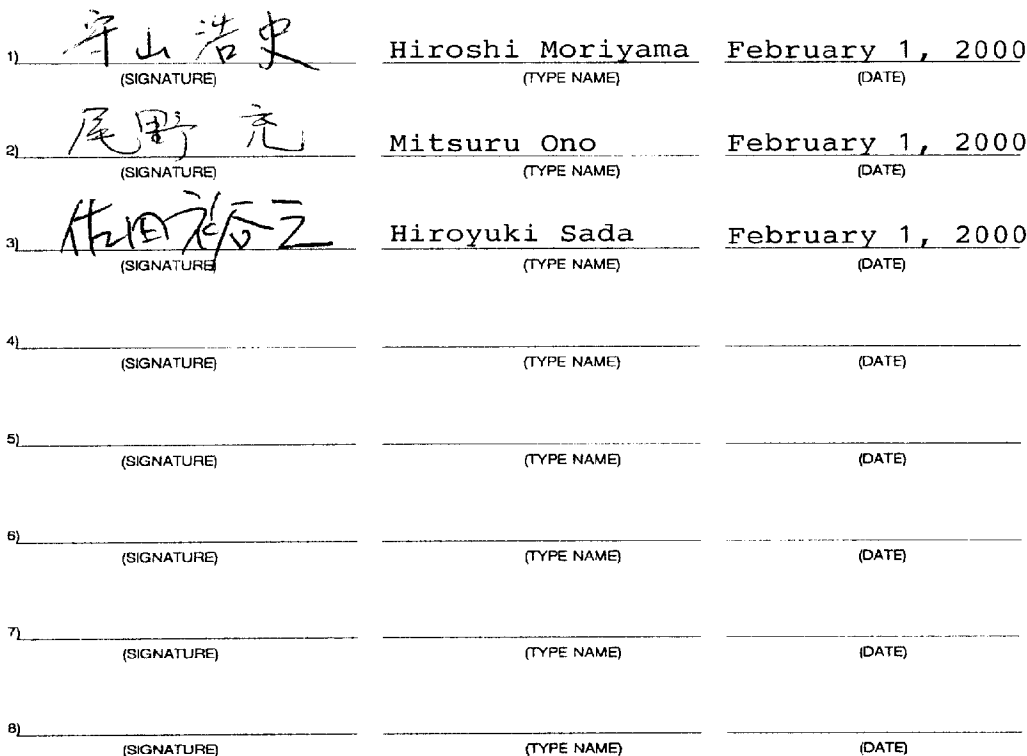 1) 守山浩史 Hiroshi Moriyama February 1, 2000
(SIGNATURE) (TYPE NAME) (DATE)
2) 尾野 充 Mitsuru Ono February 1, 2000
(SIGNATURE) (TYPE NAME) (DATE)
3) 佐田裕之 Hiroyuki Sada February 1, 2000
(SIGNATURE) (TYPE NAME) (DATE)
4)
(SIGNATURE) (TYPE NAME) (DATE)
5)
(SIGNATURE) (TYPE NAME) (DATE)
6)
(SIGNATURE) (TYPE NAME) (DATE)
7)
(SIGNATURE) (TYPE NAME) (DATE)
8)
(SIGNATURE) (TYPE NAME) (DATE)